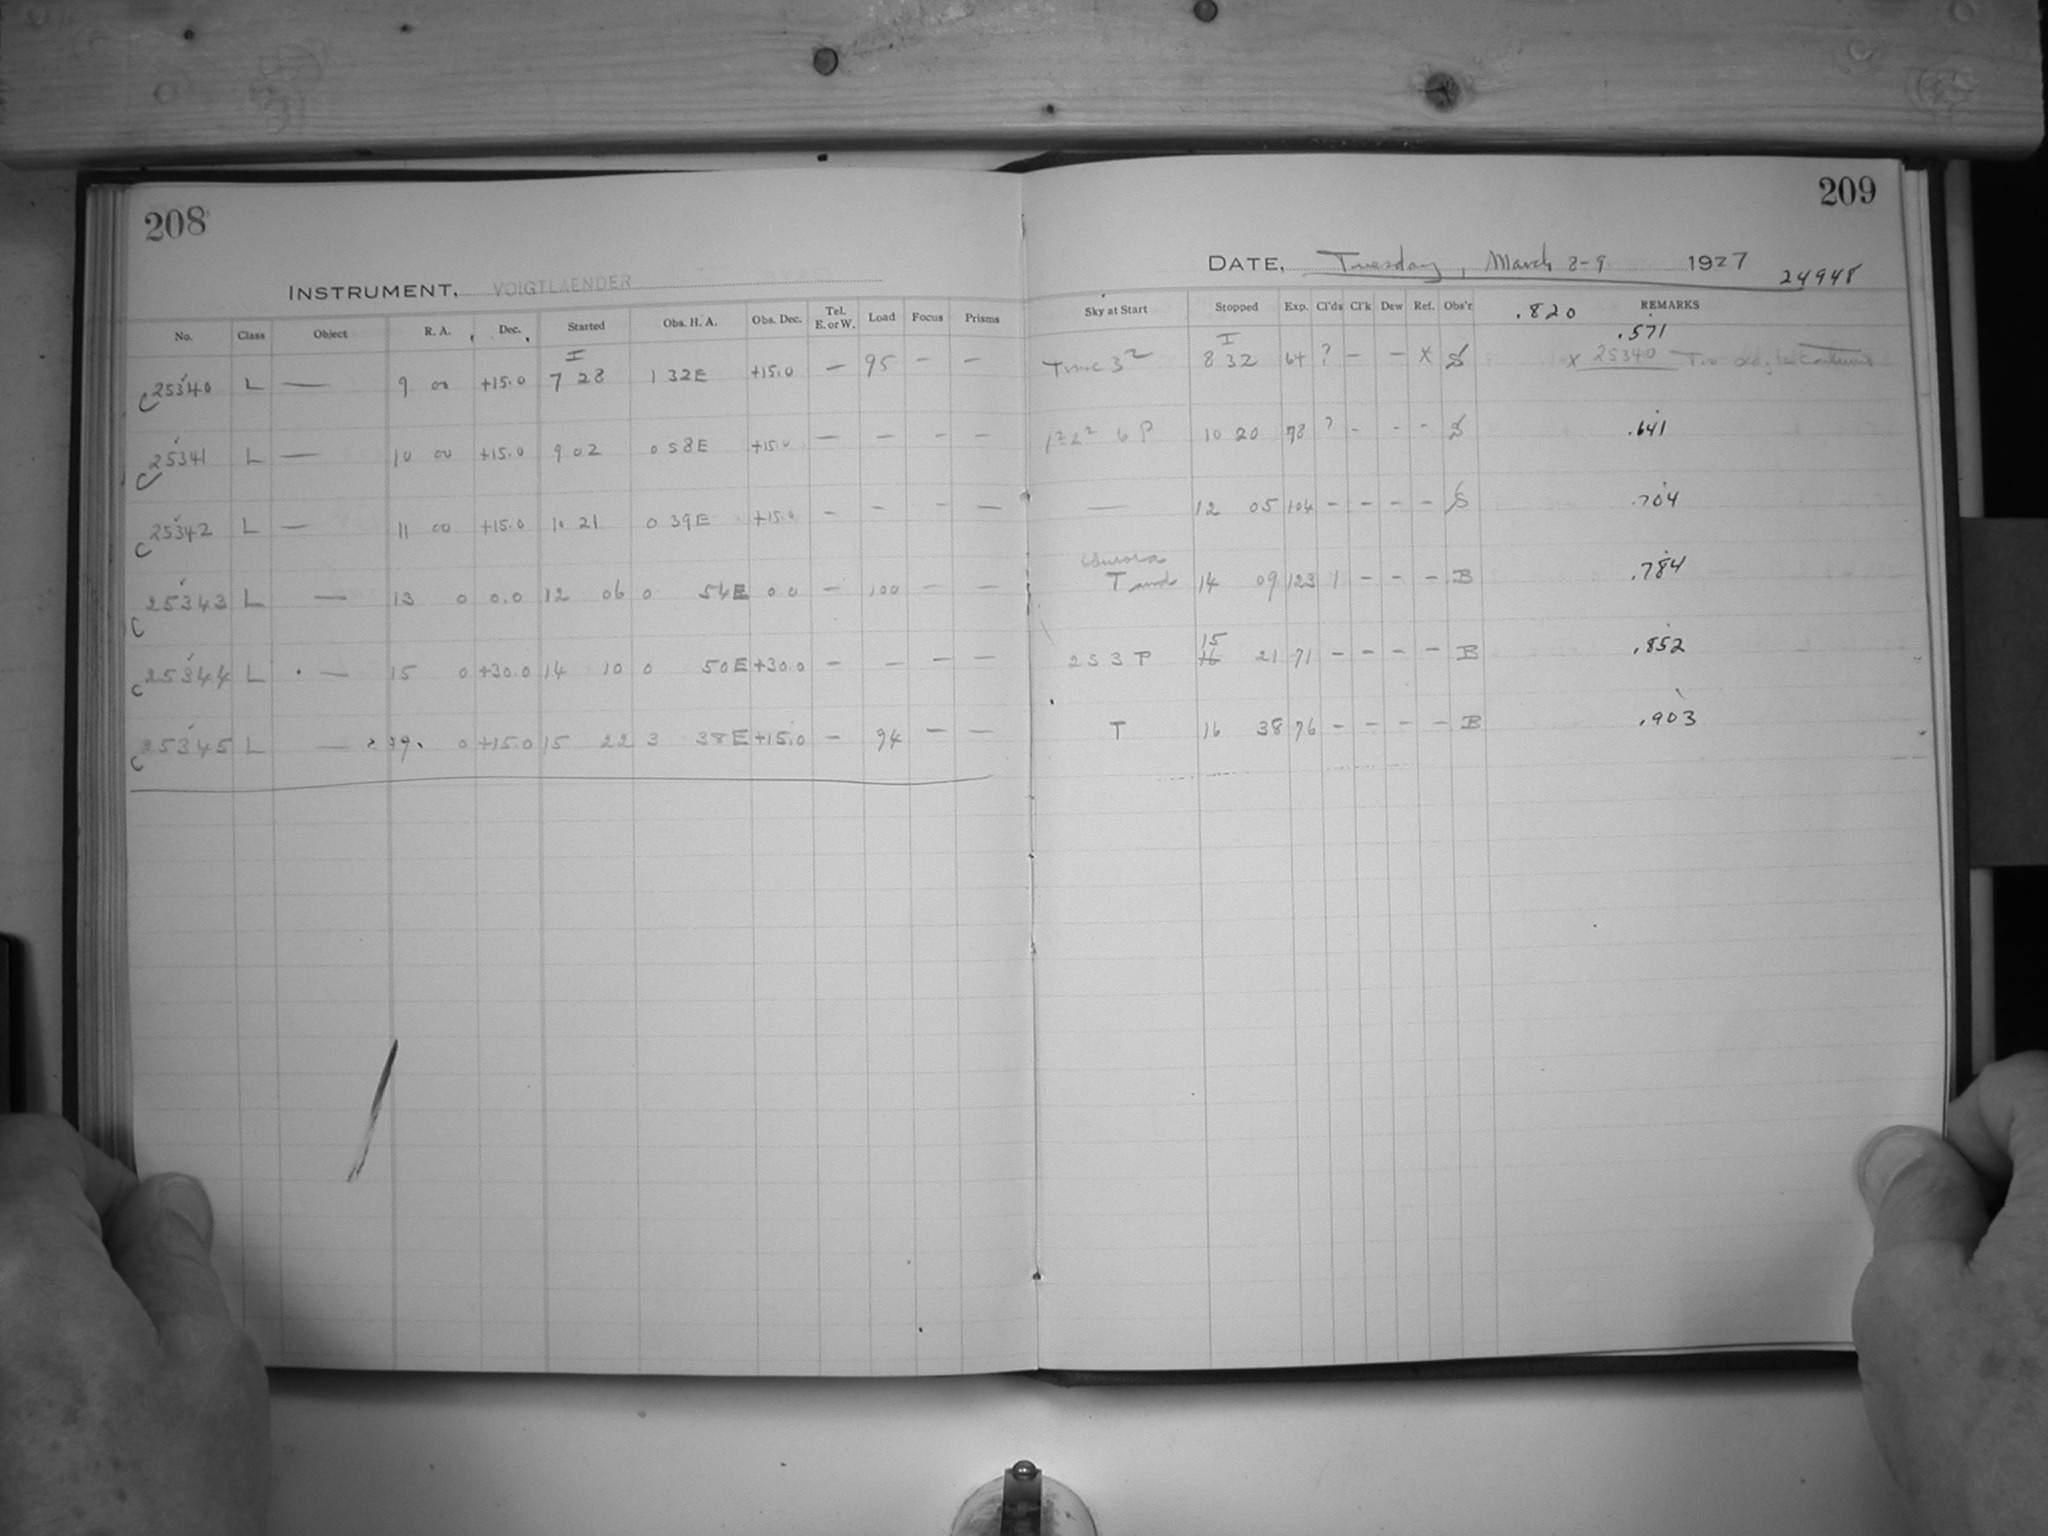 208
INSTRUMENT, VOIGTLAENDER
No. Class Object R. A. Dec. Started Obs. H. A. Obs. Dec. Tel. E. or W. Load Focus Prisms
I
C 25340 L — 9 00 +15.0 7 28 1 32E +15.0 — 95 — —
C 25341 L — 10 00 +15.0 9 02 0 58E +15.0 — — — —
C 25342 L — 11 00 +15.0 10 21 0 39E +15.0 — — — —
C 25343 L — 13 0 0.0 12 06 0 54E 0 0 — 100 — —
C 25344 L — 15 0 +30.0 14 10 0 50E +30.0 — — — —
C 25345 L — 0 +15.0 15 22 3 38E +15.0 — 94 — —
209
DATE, Tuesday, March 8-9 1927
24948
Sky at Start Stopped Exp. Cl'ds Cl'k Dew Ref. Obs'r REMARKS
.820
.571
I
8 32 64 ? — — X S X 25340 Too
1² 2² 6 P 10 20 78 ? - - - S .641
— 12 05 104 - - - - S .704
Aurora
T and 14 09 123 1 - - - B .784
15
2 S 3 P 16 21 71 - - - - B .852
T 16 38 76 - - - - B .903